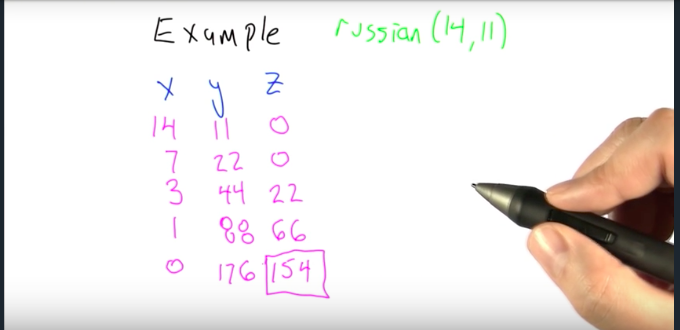 Example russian(14,11)
x y z
14 11 0
7 22 0
3 44 22
1 88 66
0 176 154